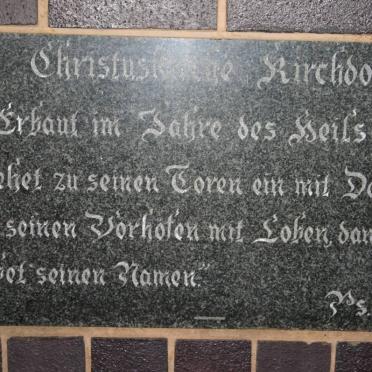 Christuskirche Kirchdo
Erbaut im Jahre des Heils
ehet zu seinen Toren ein mit Da
seinen Vorhöfen mit Loben, dan
bet seinen Namen."
Ps.